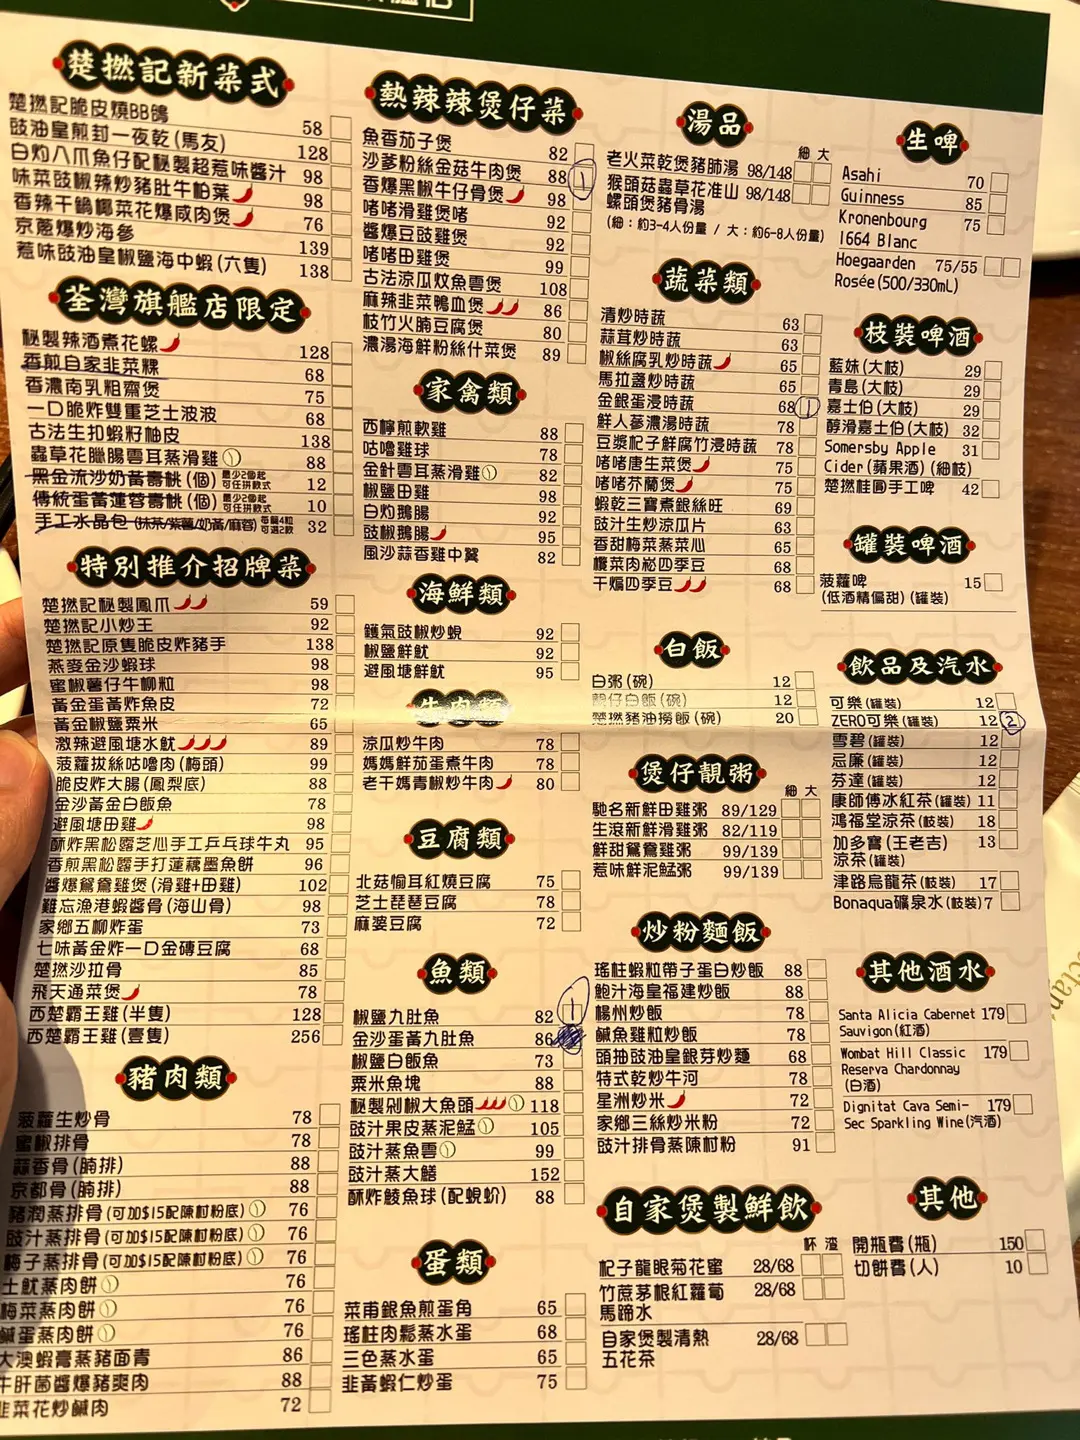 楚撚記新菜式
楚撚記脆皮燒BB鴿 58
豉油皇煎封一夜乾(馬友) 128
白灼八爪魚仔配秘製超惹味醬汁 98
味菜豉椒辣炒豬肚牛柏葉 98
香辣干鍋椰菜花爆咸肉煲 76
京蔥爆炒海參 139
惹味豉油皇椒鹽海中蝦(六隻) 138
荃灣旗艦店限定
秘製辣酒煮花螺 128
香煎自家韭菜粿 68
香濃南乳粗齋煲 75
一口脆炸雙重芝士波波 68
古法生扣蝦籽柚皮 138
蟲草花臘腸雲耳蒸滑雞 88
黑金流沙奶黃壽桃(個) 最少2個起 可任拼款式 12
傳統蛋黃蓮蓉壽桃(個) 最少2個起 可任拼款式 10
手工水晶包(抹茶/紫薯/奶黃/麻蓉) 每籠4粒 可選2款 32
特別推介招牌菜
楚撚記秘製鳳爪 59
楚撚記小炒王 92
楚撚記原隻脆皮炸豬手 138
燕麥金沙蝦球 98
蜜椒薯仔牛柳粒 98
黃金蛋黃炸魚皮 72
黃金椒鹽粟米 65
激辣避風塘水魷 89
菠蘿拔絲咕嚕肉(梅頭) 99
脆皮炸大腸(鳳梨底) 88
金沙黃金白飯魚 78
避風塘田雞 98
酥炸黑松露芝心手工乒乓球牛丸 95
香煎黑松露手打蓮藕墨魚餅 96
醬爆鴛鴦雞煲(滑雞+田雞) 102
難忘漁港蝦醬骨(海山骨) 98
家鄉五柳炸蛋 73
七味黃金炸一口金磚豆腐 68
楚撚沙拉骨 85
飛天通菜煲 78
西楚霸王雞(半隻) 128
西楚霸王雞(壹隻) 256
豬肉類
菠蘿生炒骨 78
蜜椒排骨 78
蒜香骨(腩排) 88
京都骨(腩排) 88
豬潤蒸排骨(可加$15配陳村粉底) 76
豉汁蒸排骨(可加$15配陳村粉底) 76
梅子蒸排骨(可加$15配陳村粉底) 76
土魷蒸肉餅 76
梅菜蒸肉餅 76
鹹蛋蒸肉餅 76
大澳蝦膏蒸豬面青 86
牛肝菌醬爆豬爽肉 88
韭菜花炒鹹肉 72
熱辣辣煲仔菜
魚香茄子煲 82
沙爹粉絲金菇牛肉煲 88 1
香爆黑椒牛仔骨煲 98
啫啫滑雞煲啫 92
醬爆豆豉雞煲 92
啫啫田雞煲 99
古法涼瓜炆魚雲煲 108
麻辣韭菜鴨血煲 86
枝竹火腩豆腐煲 80
濃湯海鮮粉絲什菜煲 89
家禽類
西檸煎軟雞 88
咕嚕雞球 78
金針雲耳蒸滑雞 82
椒鹽田雞 98
白灼鵝腸 92
豉椒鵝腸 95
風沙蒜香雞中翼 82
海鮮類
鑊氣豉椒炒蜆 92
椒鹽鮮魷 92
避風塘鮮魷 95
牛肉類
涼瓜炒牛肉 78
媽媽鮮茄蛋煮牛肉 78
老干媽青椒炒牛肉 80
豆腐類
北菇愉耳紅燒豆腐 75
芝士琵琶豆腐 78
麻婆豆腐 72
魚類
椒鹽九肚魚 82 1
金沙蛋黃九肚魚 86
椒鹽白飯魚 73
粟米魚塊 88
秘製剁椒大魚頭 118
豉汁果皮蒸泥鯭 105
豉汁蒸魚雲 99
豉汁蒸大鱔 152
酥炸鯪魚球(配蜆蚧) 88
蛋類
菜甫銀魚煎蛋角 65
瑤柱肉鬆蒸水蛋 68
三色蒸水蛋 65
韭黃蝦仁炒蛋 75
湯品
細 大
老火菜乾煲豬肺湯 98/148
猴頭菇蟲草花准山 98/148
螺頭煲豬骨湯
(細:約3-4人份量 / 大:約6-8人份量)
蔬菜類
清炒時蔬 63
蒜茸炒時蔬 63
椒絲腐乳炒時蔬 65
馬拉盞炒時蔬 65
金銀蛋浸時蔬 68 1
鮮人蔘濃湯時蔬 78
豆漿杞子鮮腐竹浸時蔬 78
啫啫唐生菜煲 75
啫啫芥蘭煲 75
蝦乾三寶煮銀絲旺 69
豉汁生炒涼瓜片 63
香甜梅菜蒸菜心 65
欖菜肉崧四季豆 68
干煸四季豆 68
白飯
白粥(碗) 12
靚仔白飯(碗) 12
楚撚豬油撈飯(碗) 20
煲仔靚粥
細 大
馳名新鮮田雞粥 89/129
生滾新鮮滑雞粥 82/119
鮮甜鴛鴦雞粥 99/139
惹味鮮泥鯭粥 99/139
炒粉麵飯
瑤柱蝦粒帶子蛋白炒飯 88
鮑汁海皇福建炒飯 88
楊州炒飯 78
鹹魚雞粒炒飯 78
頭抽豉油皇銀芽炒麵 68
特式乾炒牛河 78
星洲炒米 72
家鄉三絲炒米粉 72
豉汁排骨蒸陳村粉 91
自家煲製鮮飲
杯 渣
杞子龍眼菊花蜜 28/68
竹蔗茅根紅蘿蔔 28/68
馬蹄水
自家煲製清熱 28/68
五花茶
生啤
Asahi 70
Guinness 85
Kronenbourg 75
1664 Blanc
Hoegaarden 75/55
Rosée(500/330mL)
枝裝啤酒
藍妹(大枝) 29
青島(大枝) 29
嘉士伯(大枝) 29
醇滑嘉士伯(大枝) 32
Somersby Apple 31
Cider(蘋果酒)(細枝)
楚撚桂圓手工啤 42
罐裝啤酒
菠蘿啤 15
(低酒精偏甜)(罐裝)
飲品及汽水
可樂(罐裝) 12
ZERO可樂(罐裝) 12 2
雪碧(罐裝) 12
忌廉(罐裝) 12
芬達(罐裝) 12
康師傅冰紅茶(罐裝) 11
鴻福堂涼茶(枝裝) 18
加多寶(王老吉) 13
涼茶(罐裝)
津路烏龍茶(枝裝) 17
Bonaqua礦泉水(枝裝) 7
其他酒水
Santa Alicia Cabernet 179
Sauvigon(紅酒)
Wombat Hill Classic 179
Reserva Chardonnay
(白酒)
Dignitat Cava Semi- 179
Sec Sparkling Wine(汽酒)
其他
開瓶費(瓶) 150
切餅費(人) 10